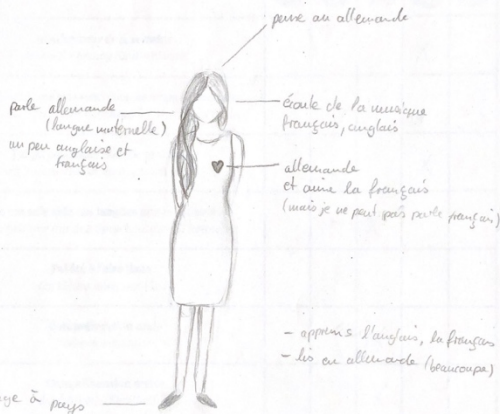 pense au allemande
parle allemande
(langue maternelle)
un peu anglaise et
français
écoute de la musique
français, anglais
allemande
et aime la français
(mais je ne peut pas parle français)
- apprens l'anglais, la français
- lis en allemande (beaucoupe)
à pays